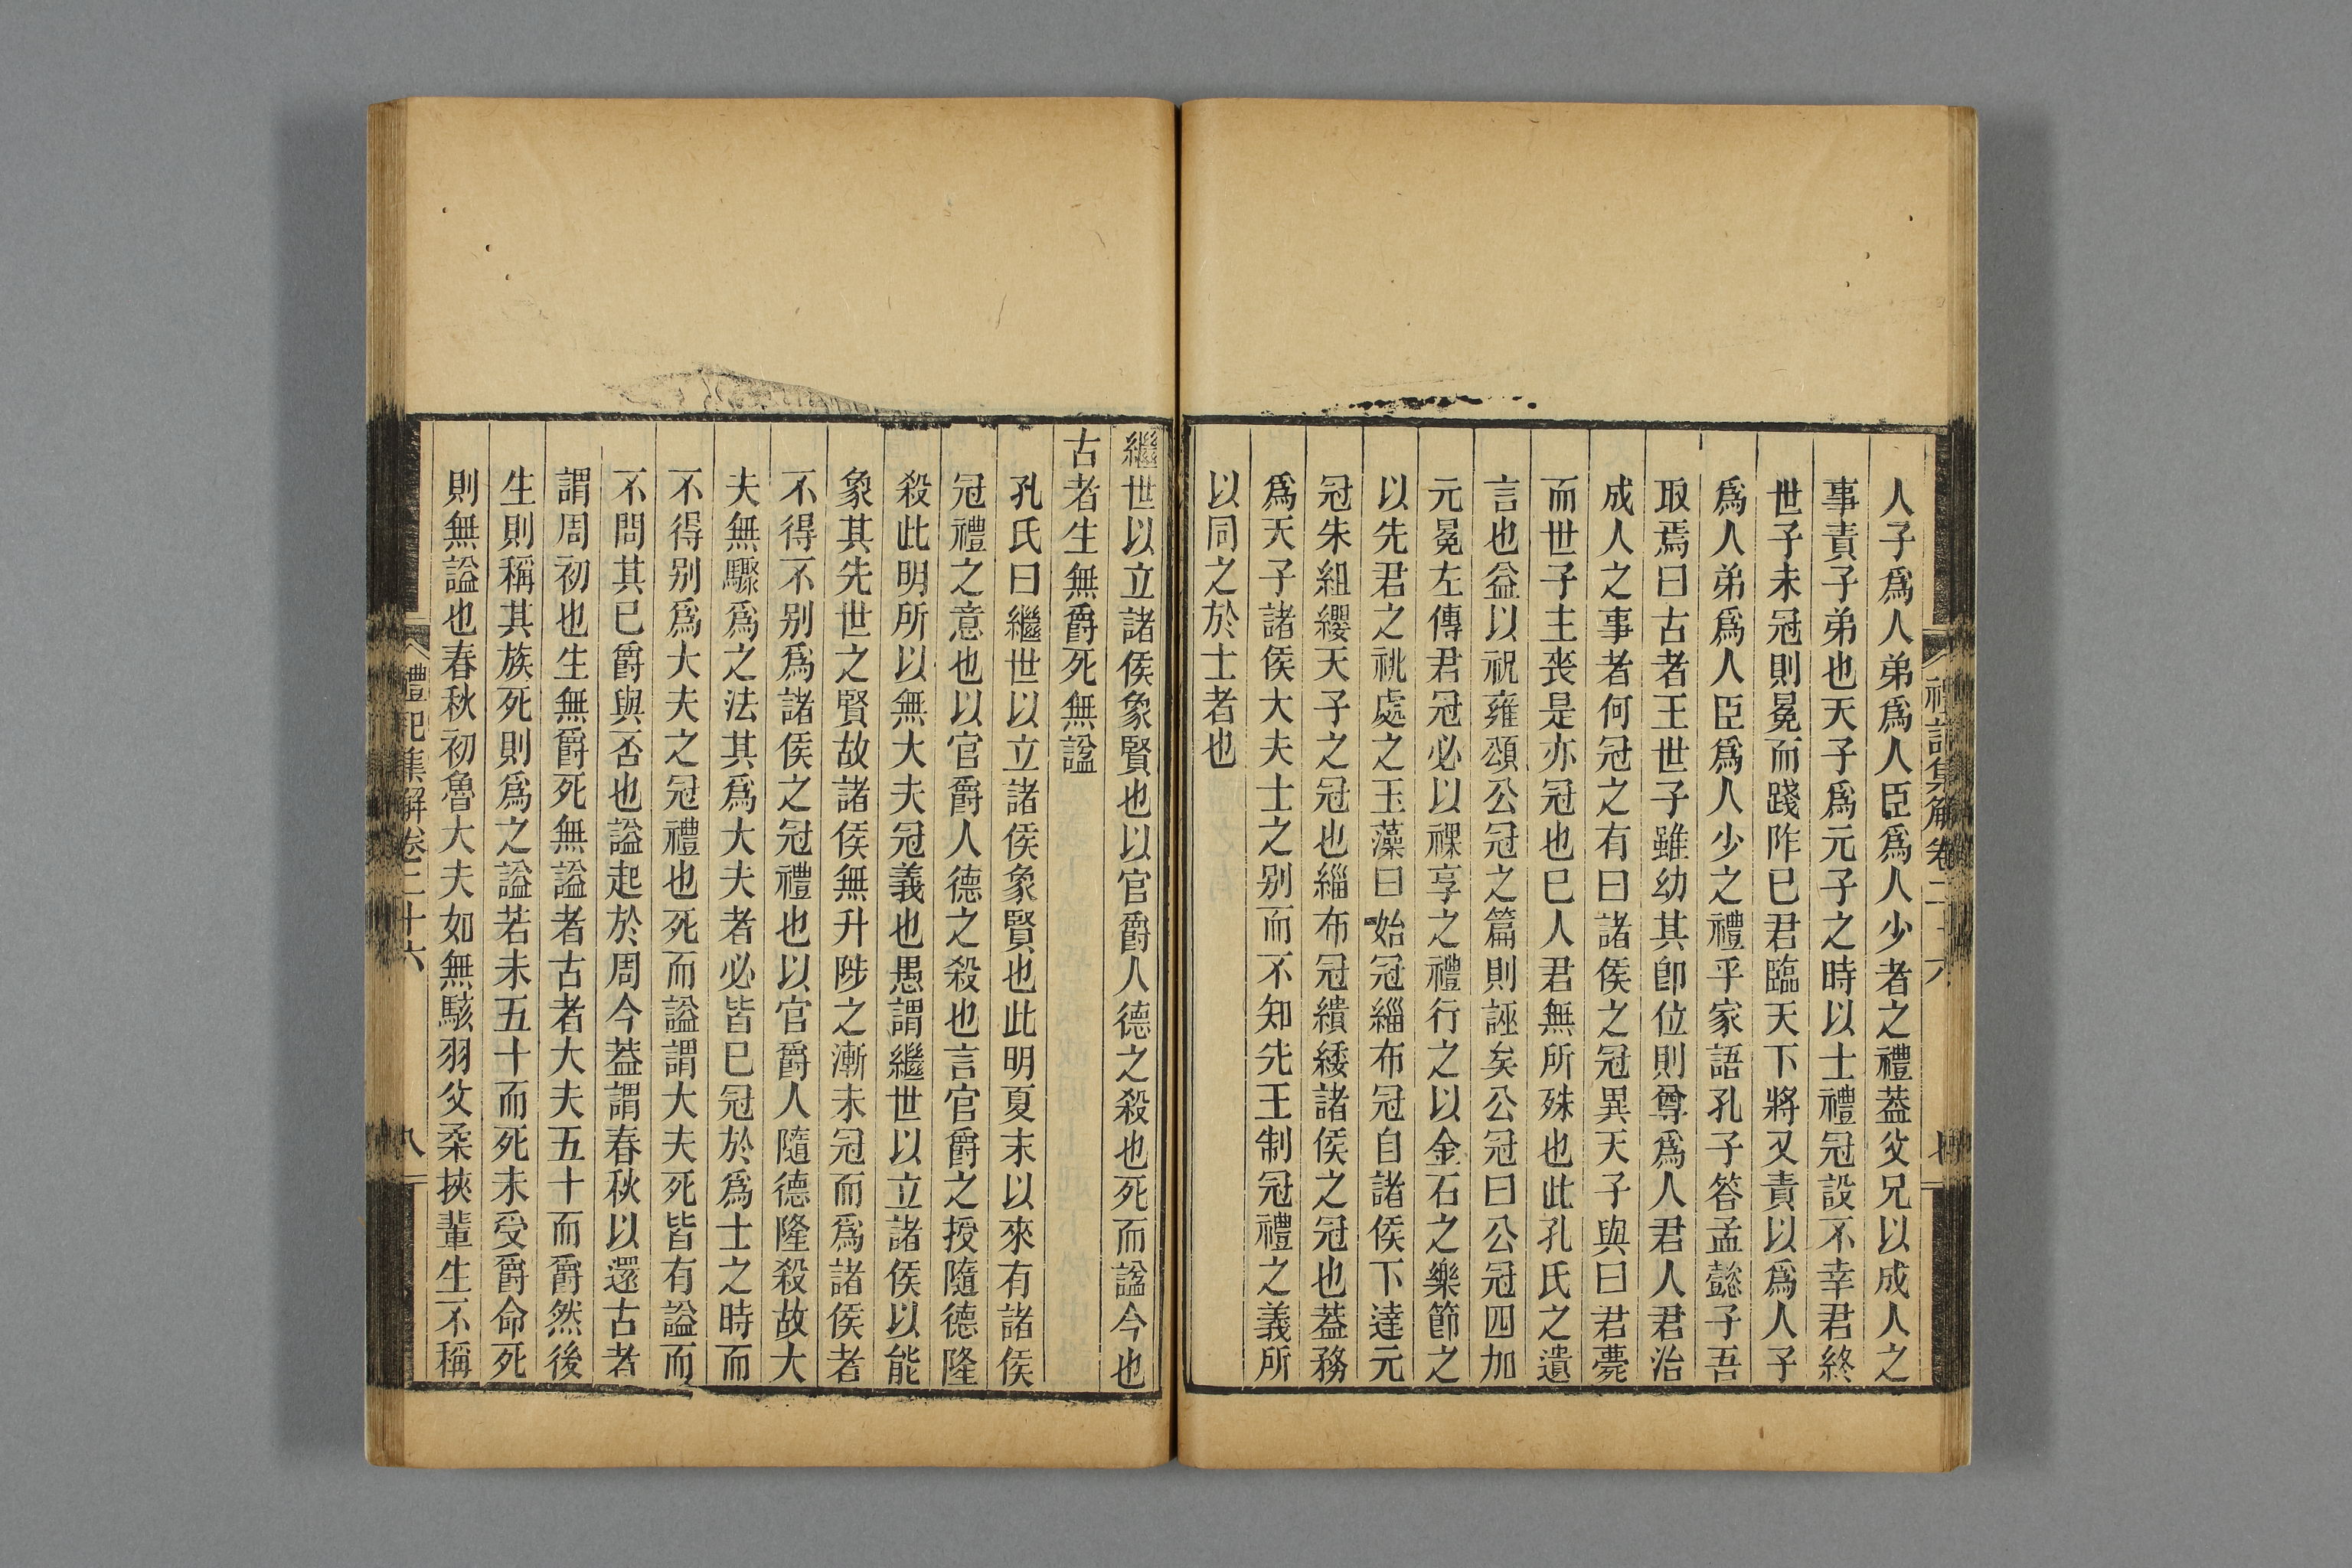 禮記集解卷二十六 七
人子爲人弟爲人臣爲人少者之禮葢父兄以成人之
事責子弟也天子爲元子之時以士禮冠設不幸君終
世子未冠則冕而踐阼已君臨天下將又責以爲人子
爲人弟爲人臣爲人少之禮乎家語孔子答孟懿子吾
取焉曰古者王世子雖幼其卽位則尊爲人君人君治
成人之事者何冠之有曰諸侯之冠異天子與曰君薨
而世子主喪是亦冠也已人君無所殊也此孔氏之遺
言也益以祝雍頌公冠之篇則誣矣公冠曰公冠四加
元冕左傳君冠必以祼享之禮行之以金石之樂節之
以先君之祧處之玉藻曰始冠緇布冠自諸侯下達元
冠朱組纓天子之冠也緇布冠繢緌諸侯之冠也葢務
爲天子諸侯大夫士之别而不知先王制冠禮之義所
以同之於士者也
繼世以立諸侯象賢也以官爵人德之殺也死而諡今也
古者生無爵死無諡
孔氏曰繼世以立諸侯象賢也此明夏末以來有諸侯
冠禮之意也以官爵人德之殺也言官爵之授隨德隆
殺此明所以無大夫冠義也愚謂繼世以立諸侯以能
象其先世之賢故諸侯無升陟之漸未冠而爲諸侯者
不得不别爲諸侯之冠禮也以官爵人隨德隆殺故大
夫無驟爲之法其爲大夫者必皆已冠於爲士之時而
不得别爲大夫之冠禮也死而諡謂大夫死皆有諡而
不問其已爵與否也諡起於周今葢謂春秋以還古者
謂周初也生無爵死無諡者古者大夫五十而爵然後
生則稱其族死則爲之諡若未五十而死未受爵命死
則無諡也春秋初魯大夫如無駭羽父柔挾輩生不稱
禮記集解卷二十六 八